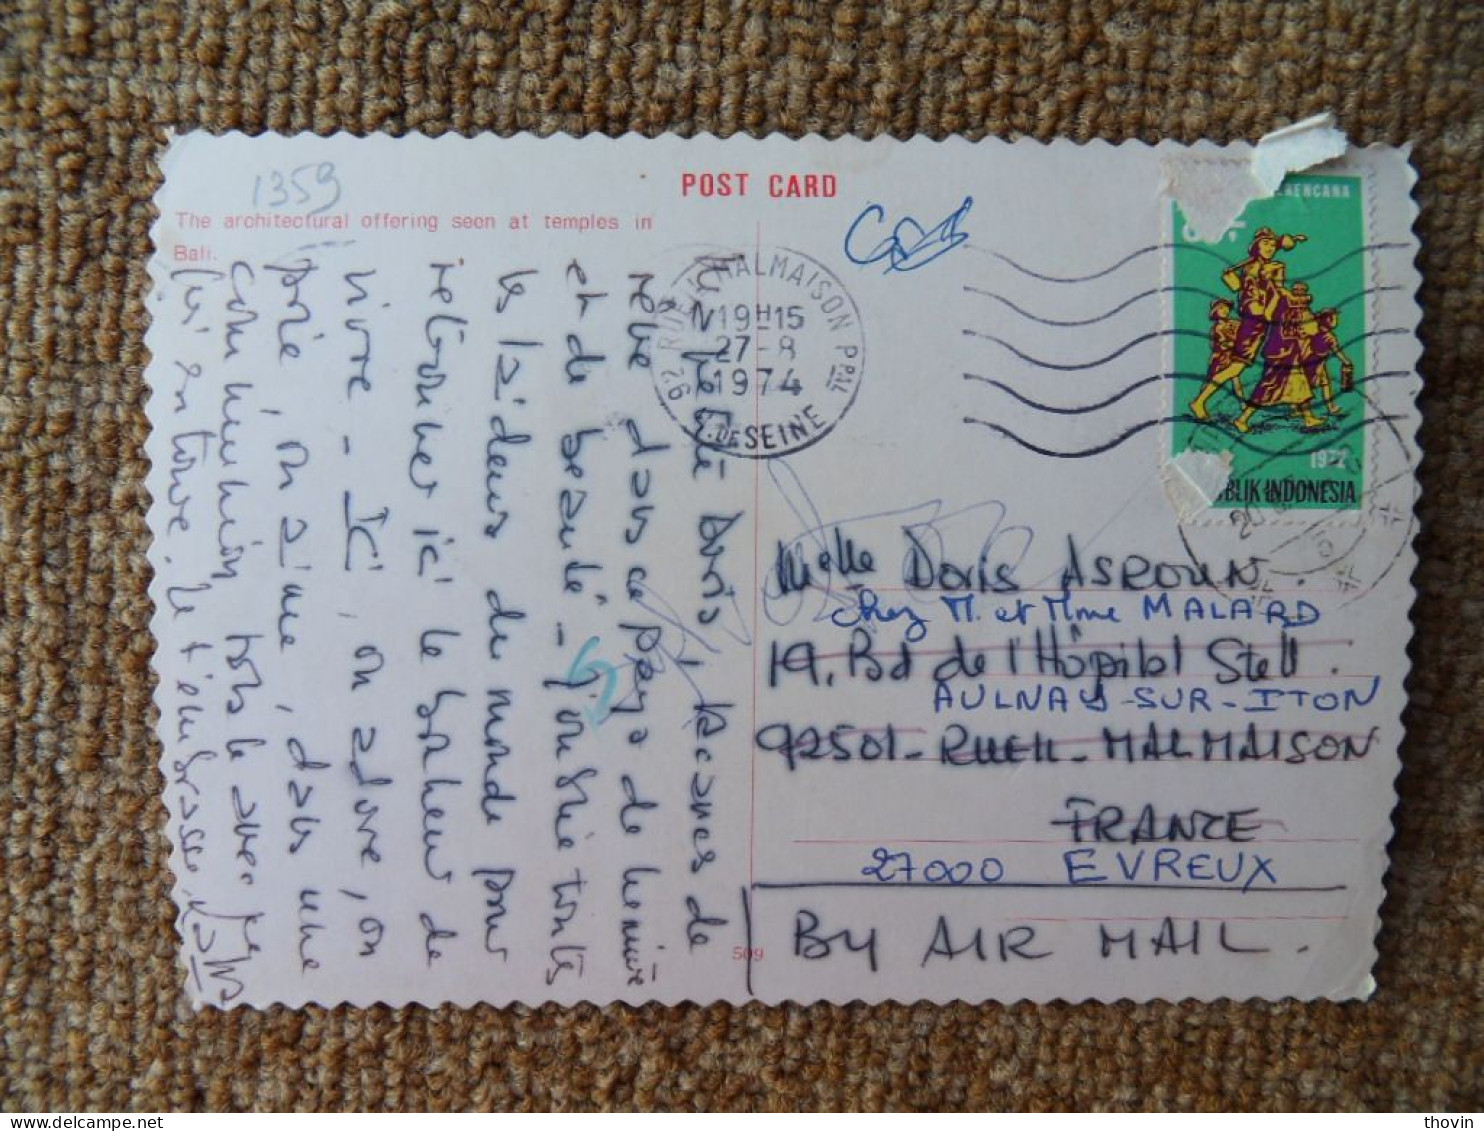 1359
POST CARD
The architectural offering seen at temples in
Bali.
RUEIL-MALMAISON PPAL
19H15
27-8
1974
92 DE SEINE
RENCANA
1972
REPUBLIK INDONESIA
Melle Doris ASROUN.
chez M. et Mme MALARD
19, Bd de l'Hôpital Stell.
AULNAY-SUR-ITON
92501-RUEIL-MALMAISON
FRANCE
27000 EVREUX
BY AIR MAIL.
509
petite Doris,
rêve dans ce pays de lumière
et de beauté - J'oublie toutes
les laideurs du monde pour
retrouver ici le bonheur de
vivre - Ici, on adore, on
prie, on aime, dans une
communion totale avec
qui entoure. Je t'embrasse.
thovin